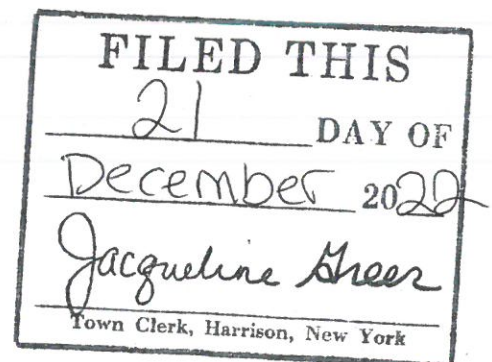 FILED THIS
21 DAY OF
December 2022
Jacqueline Greer
Town Clerk, Harrison, New York